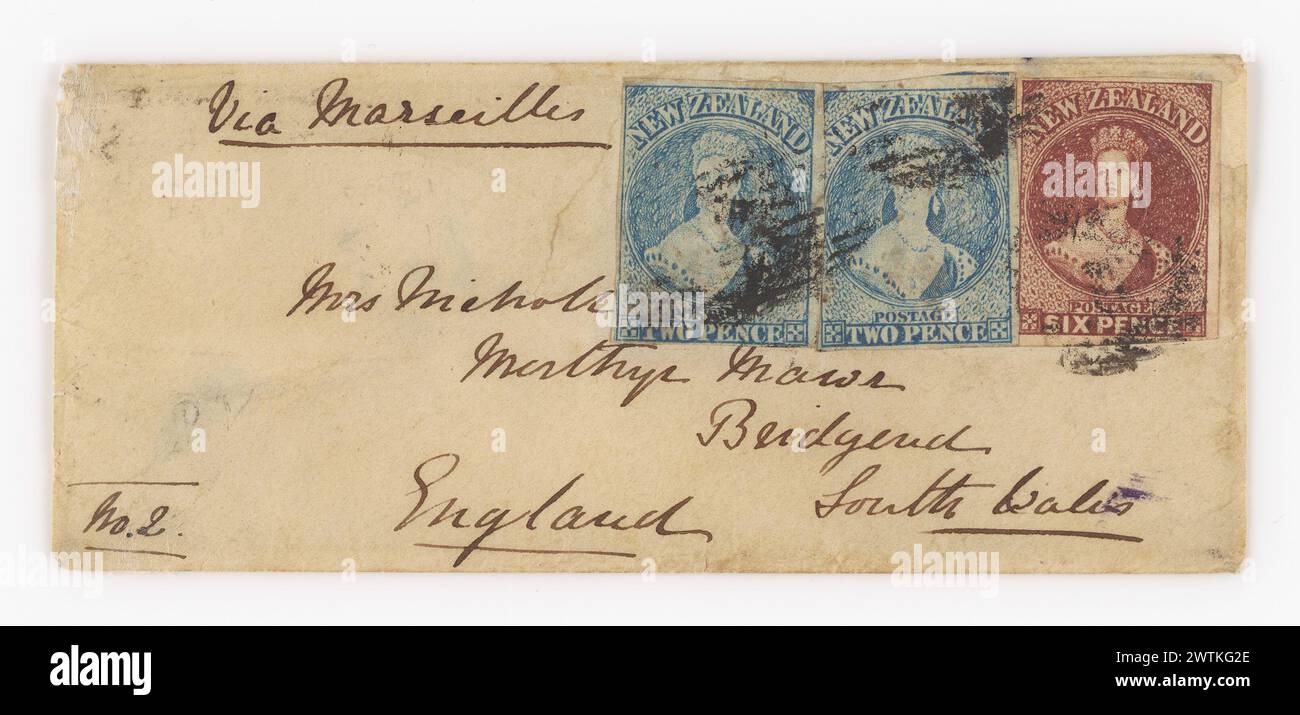 Via Marseilles
NEW ZEALAND
TWO PENCE
NEW ZEALAND
POSTAGE
TWO PENCE
NEW ZEALAND
POSTAGE
SIX PENCE
Mrs
Merthyr Mawr
Bridgend
South Wales
England
No. 2.
alamy
Image ID: 2WTKG2E
www.alamy.com